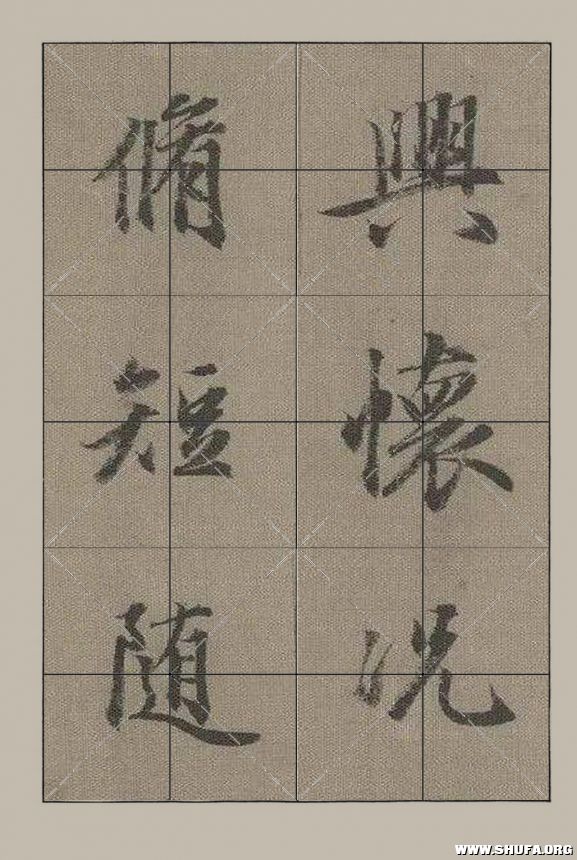 興懷況
脩短随
WWW.SHUFA.ORG